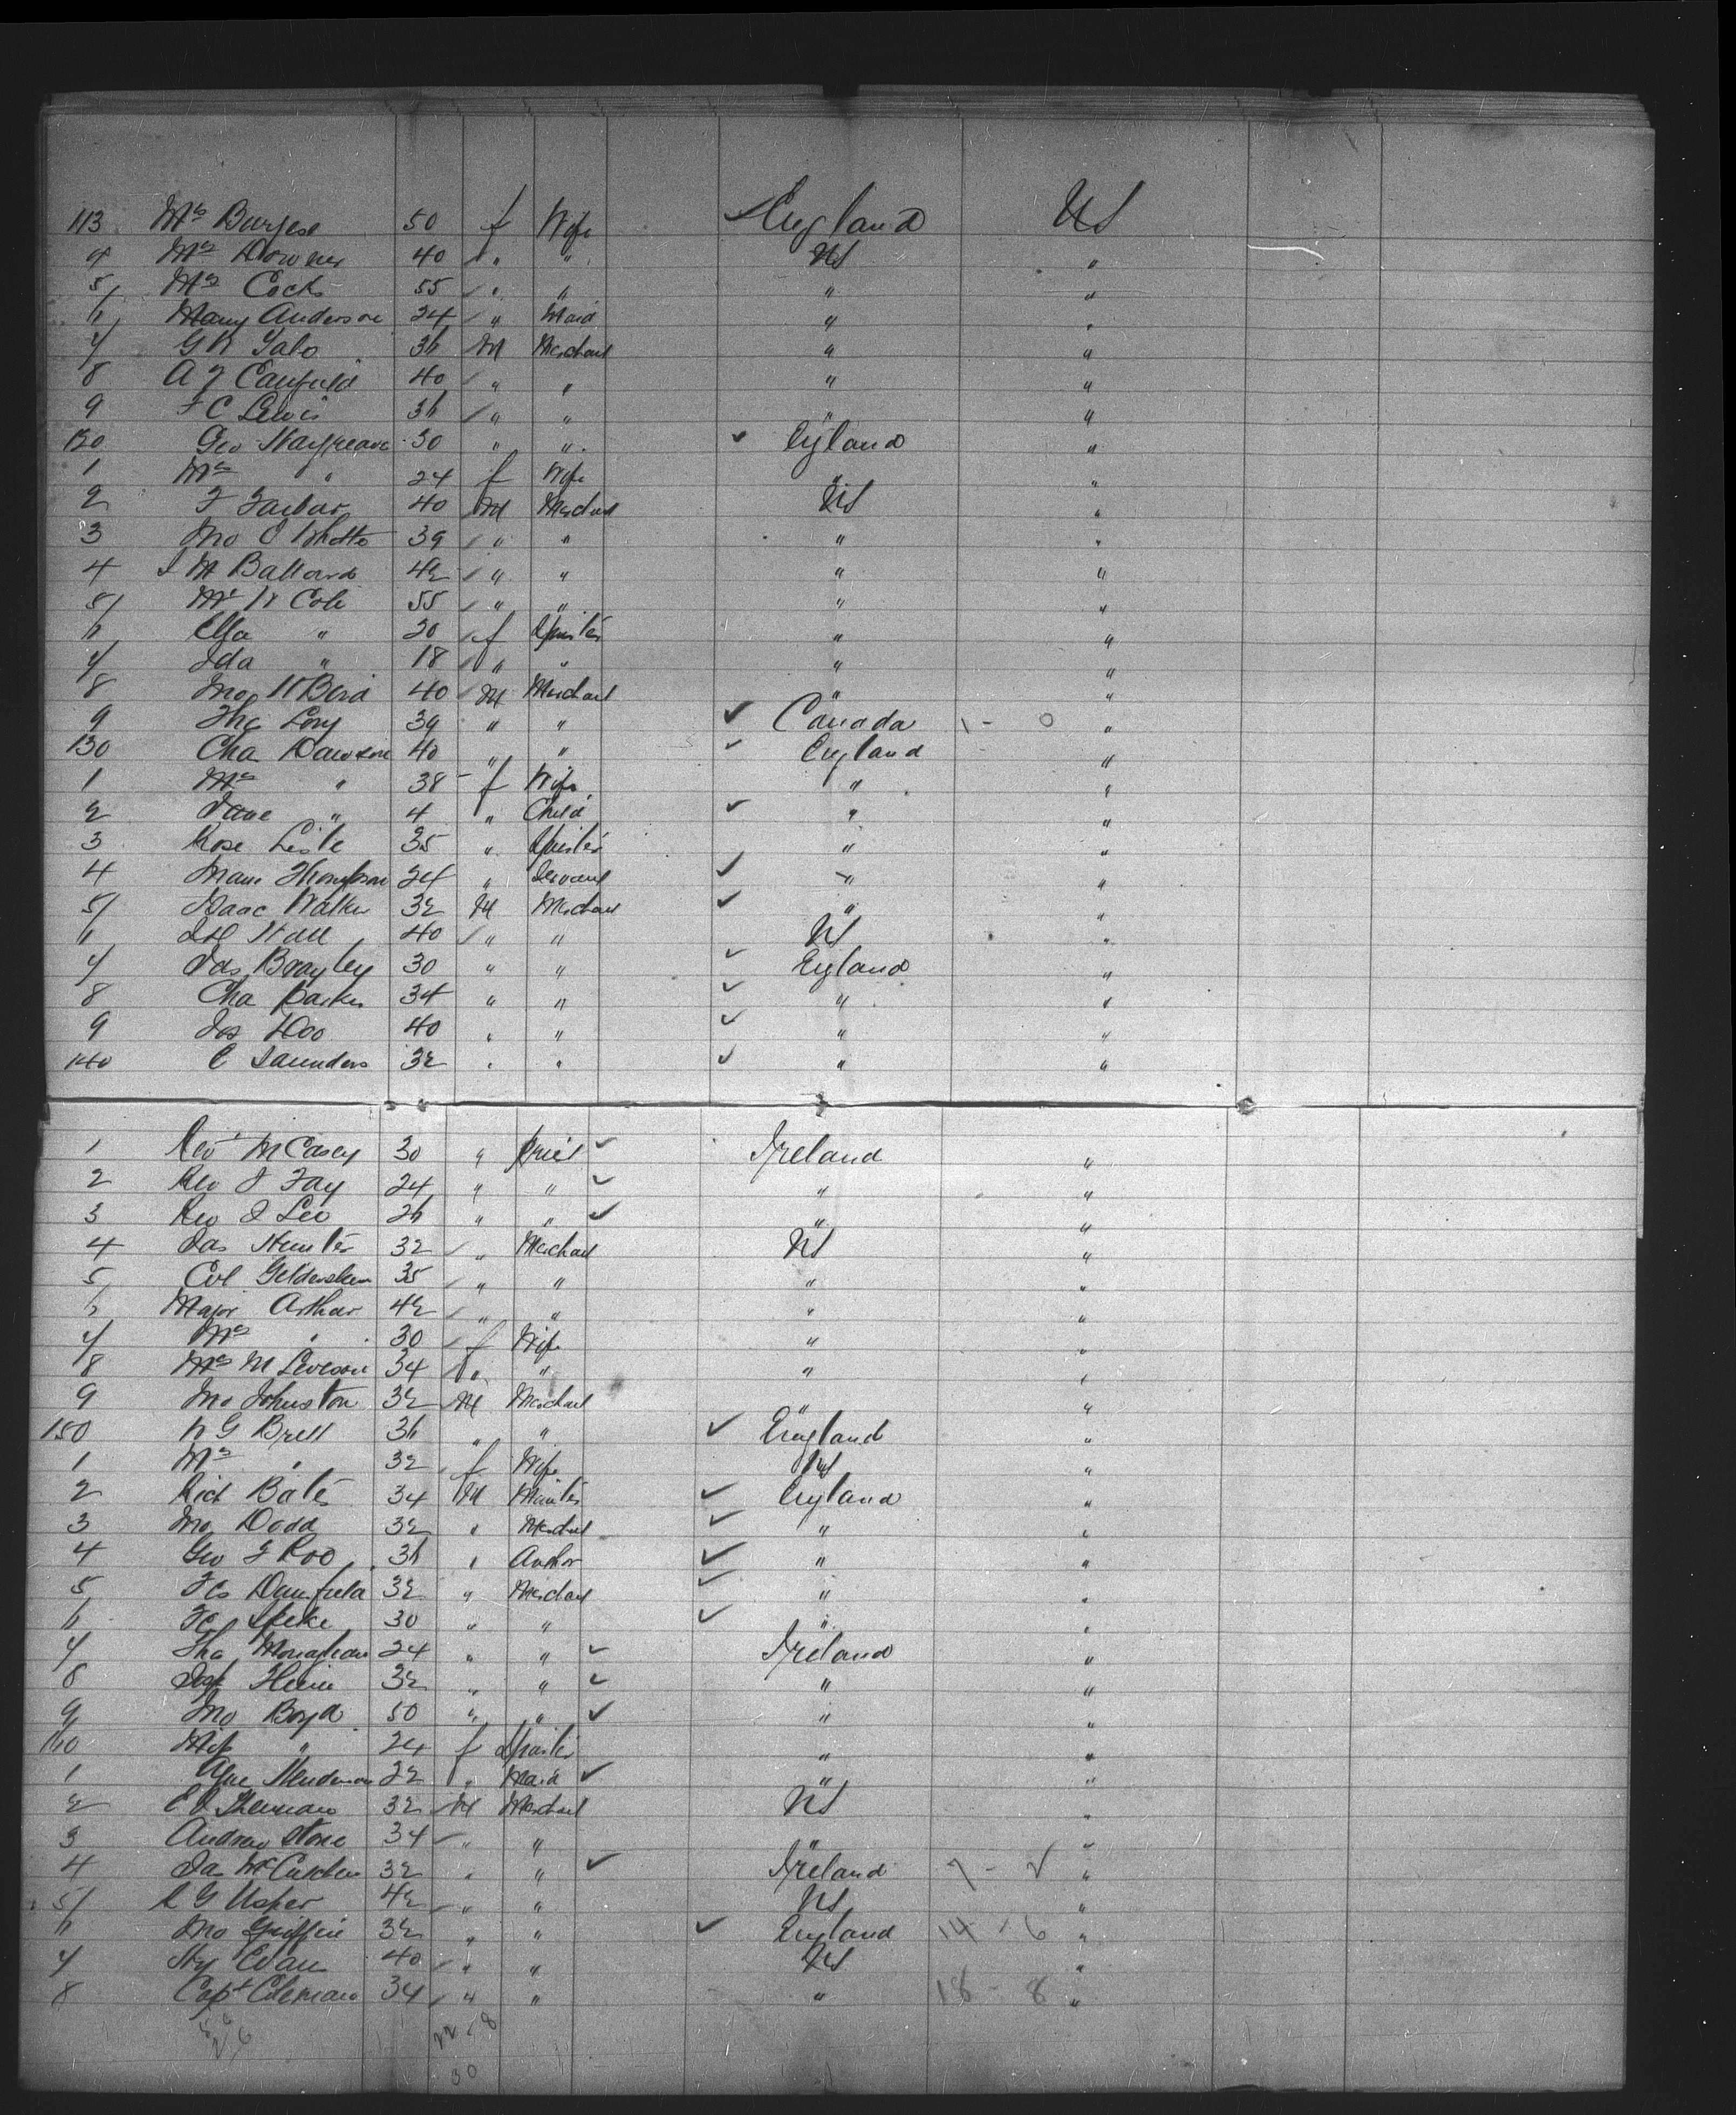 113 Mrs Burgess 50 f Wife ✓ England US
4 Mrs Downer 40 ✓ " " US "
5 Mrs Cocks 55 ✓ " " " "
6 Mary Anderson 24 ✓ " Maid " "
7 G N Talo 36 M Merchant " "
8 A F Canfield 40 ✓ " " " "
9 F C Lewis 36 ✓ " " " "
120 Geo Hargreave 30 " " ✓ England "
1 Mrs " 24 f Wife " "
2 F 40 M Merchant US "
3 Jno 39 ✓ " " " "
4 J M Ballard 42 ✓ " " " "
5 Mr W Cole 55 ✓ " " " "
6 Ella " 20 ✓ f Spinster " "
7 Ida " 18 ✓ " " " "
8 Jno H Boid 40 ✓ M Merchant " "
9 Thos Long 39 " " ✓ Canada 1 - 0 "
130 Cha Dawson 40 " " ✓ England "
1 Mrs " 38 - f Wife " "
2 Jane " 4 " Child ✓ " "
3 Rose Lisle 35 " Spinster " "
4 Thompson 24 " Servant ✓ " "
5 Isaac Walker 32 M Merchant ✓ " "
6 Hall 40 ✓ " " US "
7 Jas Brayley 30 " " ✓ England "
8 Cha Parker 34 " " ✓ " "
9 Jos Doo 40 " " ✓ " "
140 C Saunders 32 " " ✓ " "
1 Rev M Casey 30 " Priest ✓ Ireland "
2 Rev J Fay 24 " " ✓ " "
3 Rev J Leo 26 " " ✓ " "
4 Jas Hunter 32 ✓ " Merchant US "
5 Col 35 ✓ " " " "
6 Major Arthur 42 ✓ " " " "
7 Mrs " 30 ✓ f Wife " "
8 Mrs M Leveson 34 ✓ " " " "
9 Jno Johnston 32 M Merchant " "
150 W G Brett 36 " " ✓ England "
1 Mrs " 32 f Wife US "
2 Rich Bates 34 M Minister ✓ England "
3 Jno Dodd 32 " Merchant ✓ " "
4 Geo F Roo 36 " Author ✓ " "
5 Fcs 32 " Merchant ✓ " "
6 Speke 30 " " ✓ " "
7 Tho Monaghan 24 " " ✓ Ireland "
8 32 " " ✓ " "
9 Jno Boyd 50 " " ✓ " "
160 Miss " 24 f Spinster " "
1 Henderson 22 " Maid ✓ " "
2 32 M Merchant US "
3 Andrew Stone 34 ✓ " " " "
4 Jas McCutchen 32 " " ✓ Ireland 7 - 2 "
5 G Usher 42 ✓ " " US "
6 Jno Griffin 32 " " ✓ England 14 - 6 "
7 Hy Evan 40 ✓ " " US "
8 Capt Coleman 34 ✓ " " " 18 - 8 "
22 - 8
30